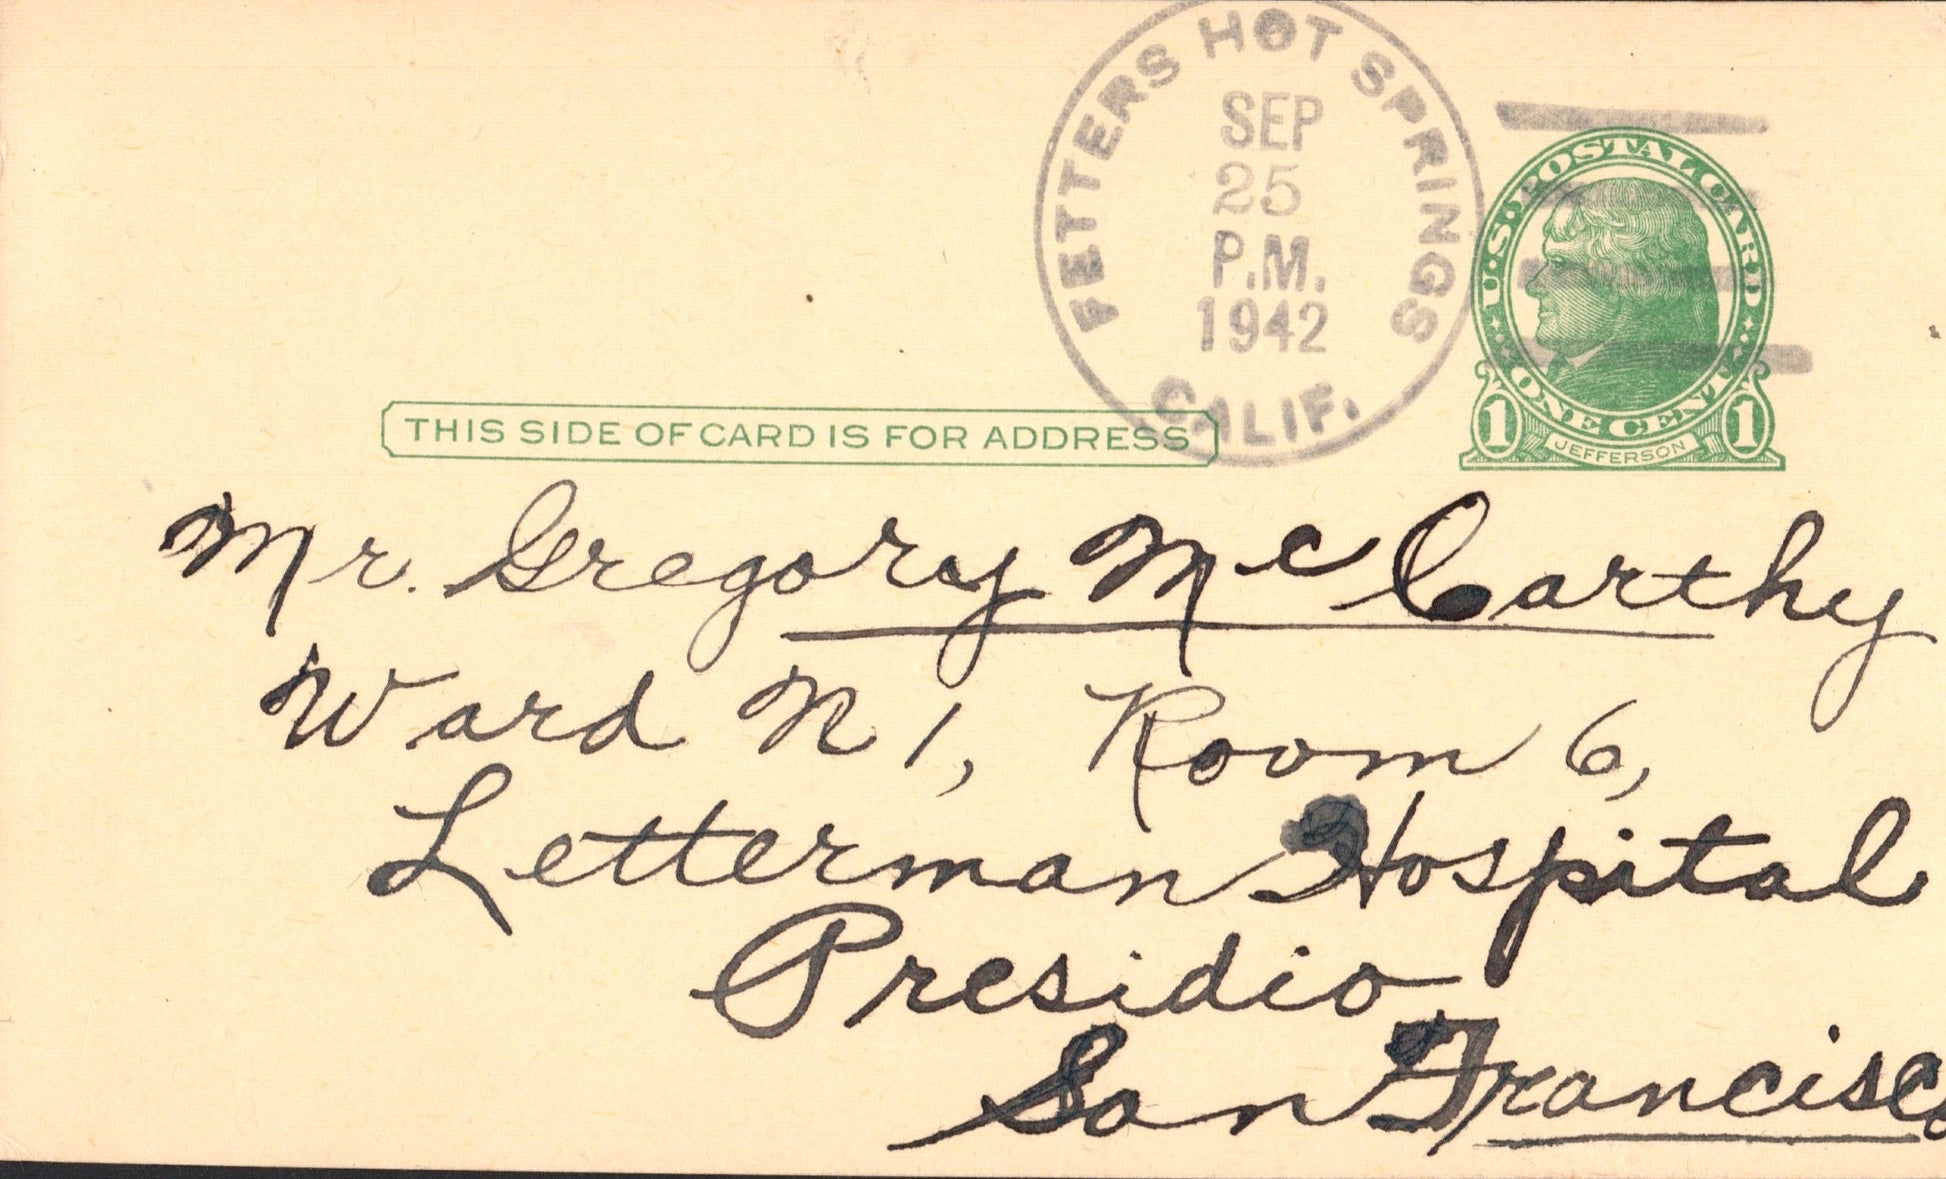 FETTERS HOT SPRINGS
SEP
25
P.M.
1942
CALIF.
U.S. POSTAL CARD
ONE CENT
1 1
JEFFERSON
THIS SIDE OF CARD IS FOR ADDRESS
Mr. Gregory McCarthy
Ward N 1, Room 6,
Letterman Hospital
Presidio
San Francisco